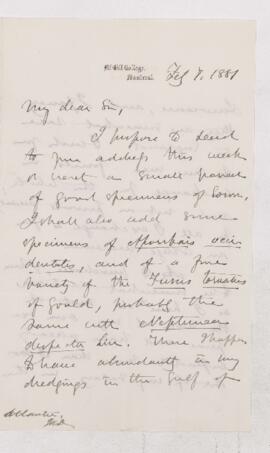 McGill College,
Montreal.
Feb 7, 1881
My dear Sir,
I propose to send
to your address this week
or next a small parcel
of good specimens of
I shall also add some
specimens of occi
dentalis, and of a fine
variety of the Fusus tornatus
of Gould, probably the
same with Neptunea
despecta Lin. These I happen
to have abundantly in my
dredgings in the Gulf of